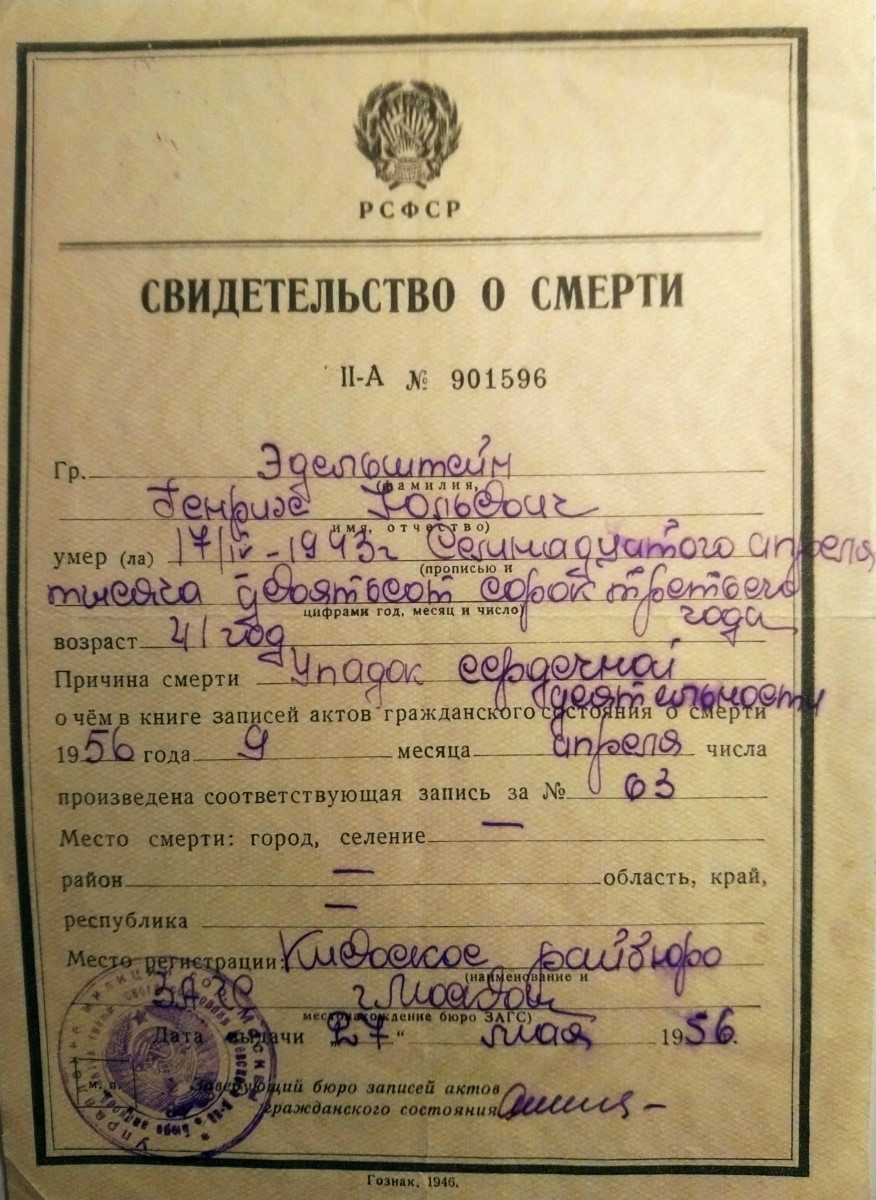 РСФСР
СВИДЕТЕЛЬСТВО О СМЕРТИ
II-А № 901596
Гр. Эдельштейн
(фамилия,
Генрих Юльевич
имя, отчество)
умер (ла) 17/IV-1943г Семнадцатого апреля
(прописью и
тысяча девятьсот сорок третьего
цифрами год, месяц и число)
года
возраст 41 год
Причина смерти Упадок сердечной
деятельности
о чём в книге записей актов гражданского состояния о смерти
1956 года 9 месяца апреля числа
произведена соответствующая запись за № 63
Место смерти: город, селение —
район — область, край,
республика —
Место регистрации: Киевское райбюро
(наименование и
ЗАГС г. Москвы
местонахождение бюро ЗАГС)
Дата выдачи „27“ мая 1956.
М. п. Заведующий бюро записей актов
гражданского состояния
Гознак. 1946.